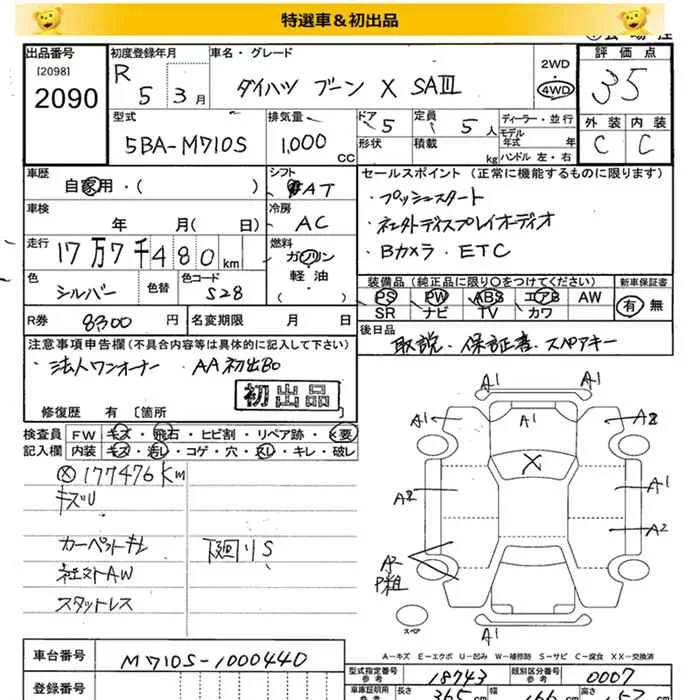 特選車&初出品
出品番号
[2098]
2090
初度登録年月
R 5 3月
車名・グレード
ダイハツ ブーン X SAⅢ
2WD
・
4WD
評価点
3.5
外装 内装
C C
型式
5BA-M710S
排気量
1,000 CC
ドア 5
形状
定員 5 人
積載 kg
ディーラー・並行
モデル年式 年
ハンドル 左・右
車歴
自家用・( )
シフト AT
車検
年 月( 日)
冷房 AC
走行
17万7千480km
燃料
ガソリン
軽・油
・( )
色
シルバー
色替
色コード
S28
セールスポイント (正常に機能するものに限ります)
・プッシュスタート
・社外ディスプレイオーディオ
・Bカメラ・ETC
装備品 (純正品に限り〇をつけてください)
新車保証書
PS PW ABS エアB AW
SR ナビ TV カワ
有・無
R券 8300 円
名変期限 月 日
後日品
取説・保証書・スペアキー
注意事項申告欄(不具合内容等は具体的に記入して下さい)
・法人ワンオーナー ・AA初出品
初出品
修復歴 有 [箇所
検査員記入欄
FW キズ・飛石・ヒビ割・リペア跡・×要
内装 キズ・汚レ・コゲ・穴・スレ・キレ・破レ
ⓧ177476Km
キズU
カーペットキレ 下廻りS
社外AW
スタットレス
A1 A1
A1 A1 A2
X
A2 A1
A2
A2
P粗
スペア
A1
A-キズ E-エクボ U-凹み W-補修跡 S-サビ C-腐食 XX-交換済
車台番号
M710S-1000440
登録番号
型式指定番号
参考
18743
類別区分番号
参考
0007
車庫証明用
参考
長さ 365 cm
幅 166 cm
高さ 152 cm